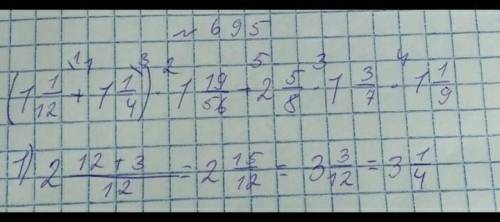 ~ 695
(1 1/12 + 1 1/4) · 1 19/56 - 2 5/8 · 1 3/7 · 1 1/9
1) 2 (12+3)/12 = 2 15/12 = 3 3/12 = 3 1/4